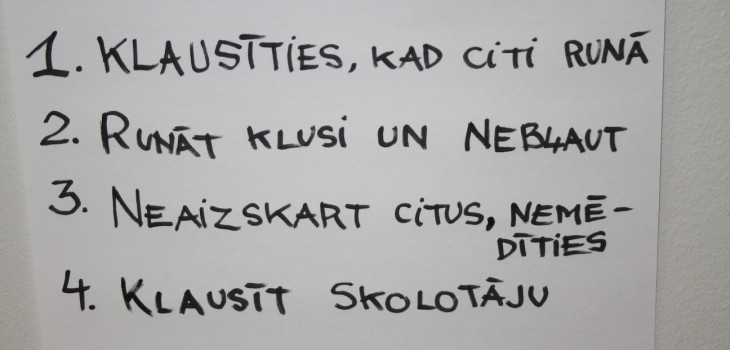 1. KLAUSĪTIES, KAD CITI RUNĀ
2. RUNĀT KLUSI UN NEBĻAUT
3. NEAIZSKART CITUS, NEMĒ-
DĪTIES
4. KLAUSĪT SKOLOTĀJU